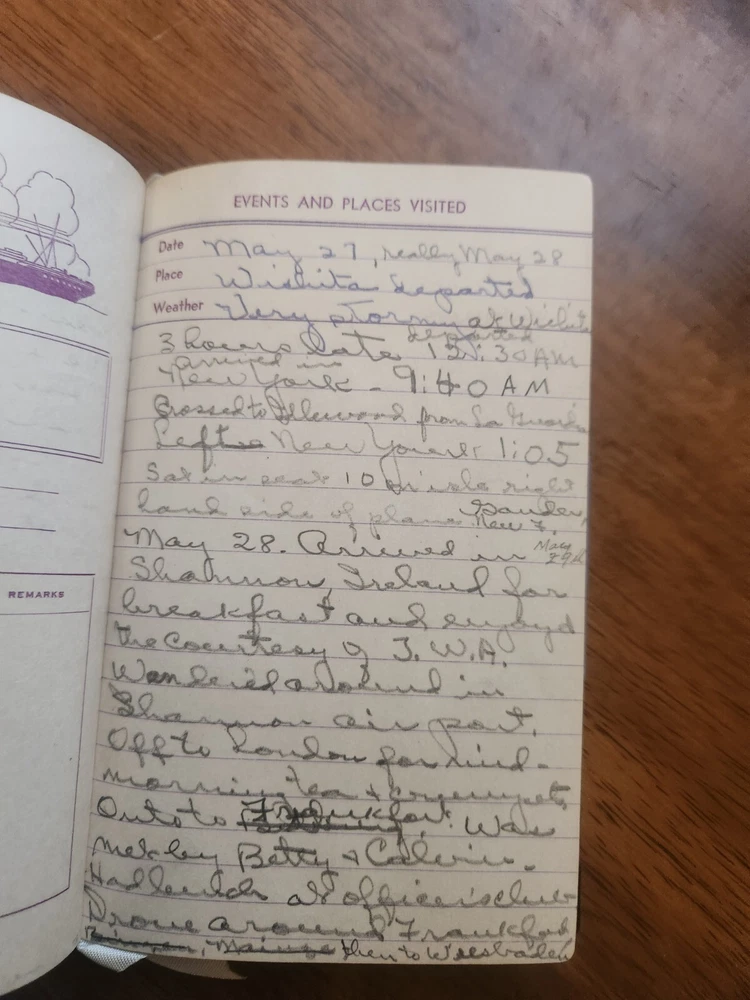 REMARKS
EVENTS AND PLACES VISITED
Date May 27, really May 28
Place Wichita departed
Weather Very stormy at Wichita
departed
3 hours late 12:30 AM
arrived in
New York - 9:40 AM
Crossed to Idlewood from La Guardia
Left New York 1:05
Sat in seat 10 on isle right
hand side of plane. Gander,
New F.
May 28. Arrived in May 29th
Shannon, Ireland for
breakfast and enjoyd
the Courtesy of T.W.A.
Wandered around in
Shannon air port.
Off to London for mid-
morning tea + crumpets
Onto to Frankfort. Was
met by Betty + Calvin.
Had lunch at officers' club
Drove around Frankfort
Bingen, Mainze then to Wiesbaden